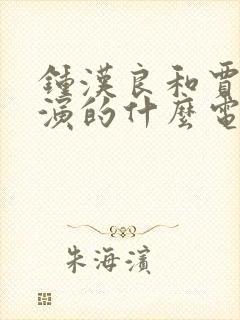 鍾漢良和賈
演的什麼電
朱海濱